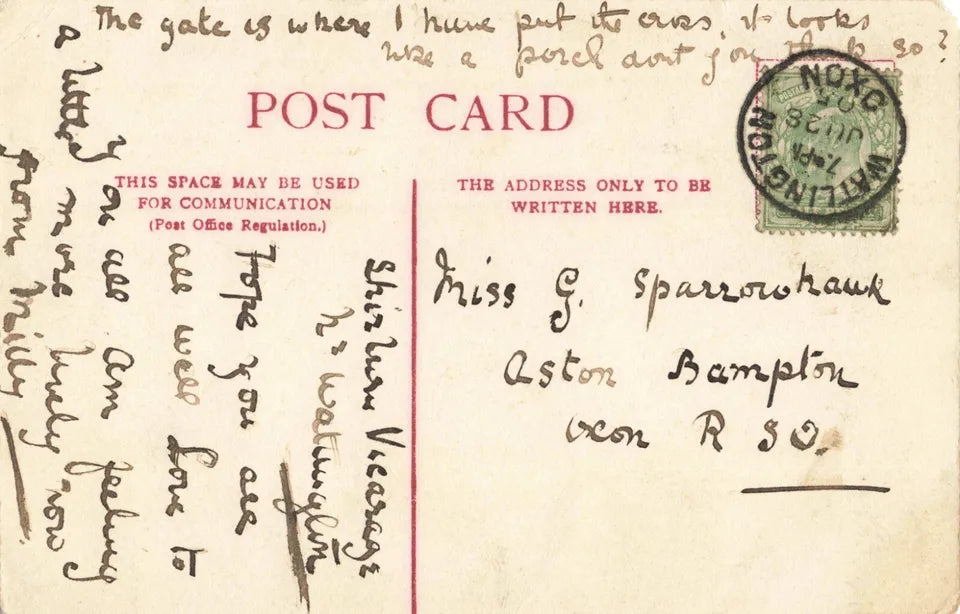 The gate is where I have put the cross, it looks
like a porch dont you think so?
POST CARD
THIS SPACE MAY BE USED
FOR COMMUNICATION
(Post Office Regulation.)
Shirburn Vicarage
Nr Watlington
Hope you are
all well Love to
you all Am feeling
a little more lively now
from Milly
THE ADDRESS ONLY TO BE
WRITTEN HERE.
Miss G. Sparrowhawk
Aston Bampton
Oxon R S O.
WATLINGTON
OXON
JU 28
05